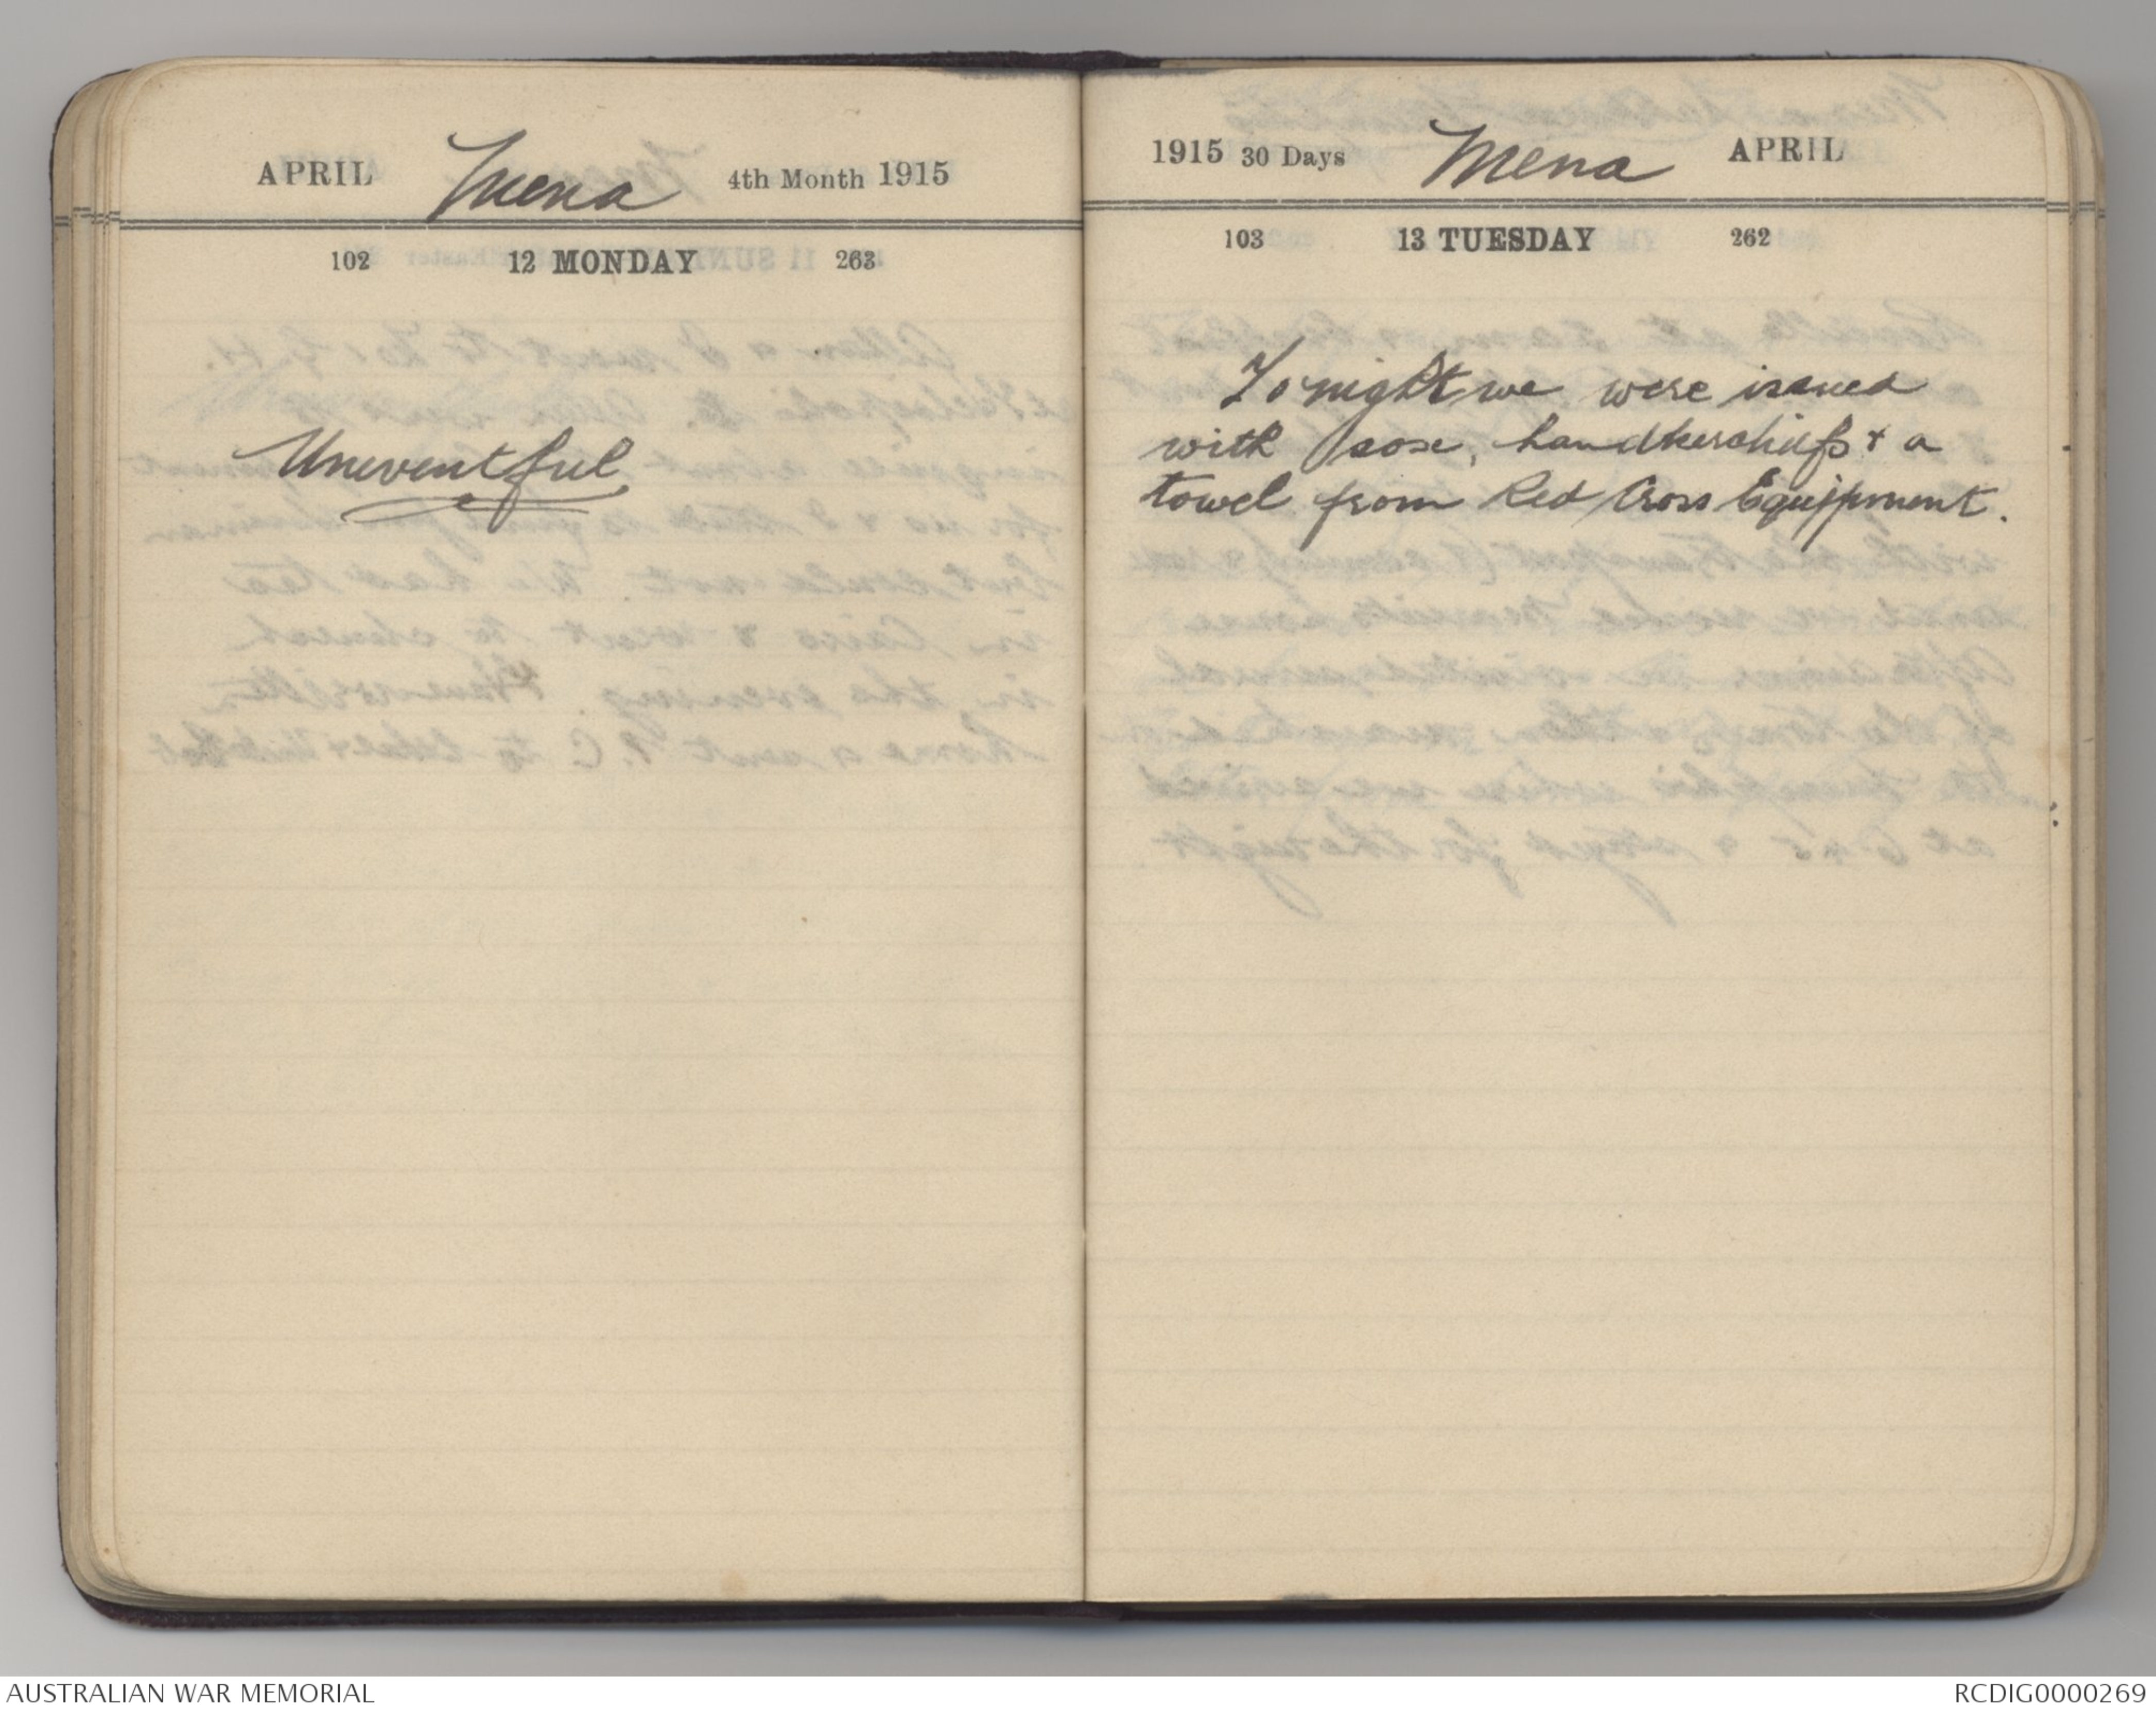 APRIL Mena 4th Month 1915
102 12 MONDAY 263
Uneventful
1915 30 Days Mena APRIL
103 13 TUESDAY 262
Tonight we were issued
with sox, handkerchiefs + a
towel from Red Cross Equippment.
AUSTRALIAN WAR MEMORIAL
RCDIG0000269